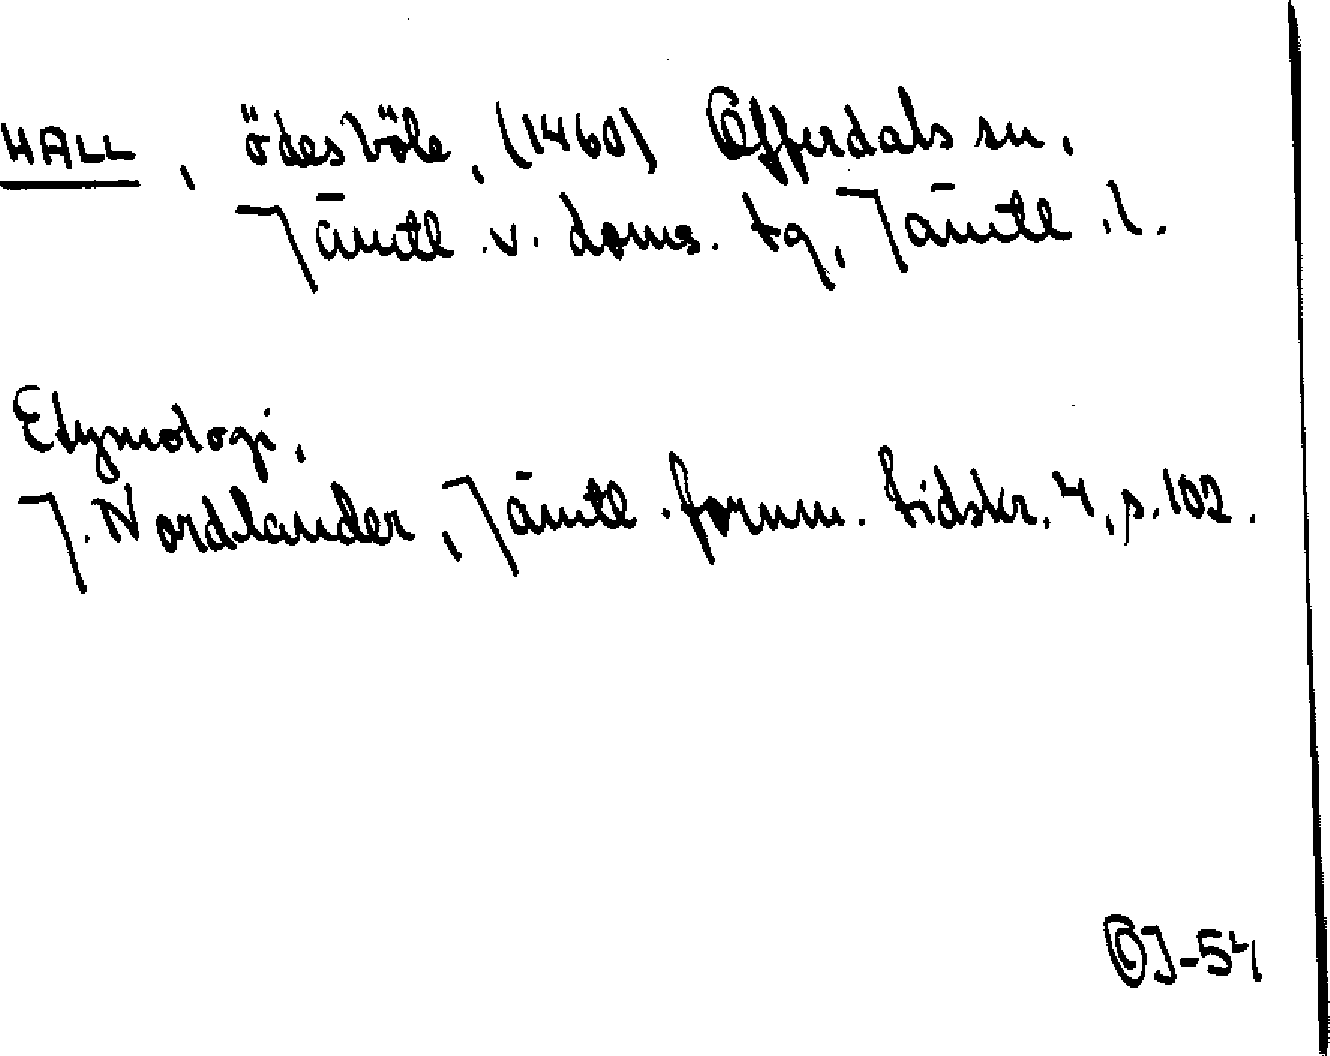 HALL, ödesböle, (1460) Offerdals sn,
Jämtl. v. doms. tg, Jämtl. l.
Etymologi.
J. Nordlander, Jämtl. fornm. tidskr. 4, s. 102.
OJ-54